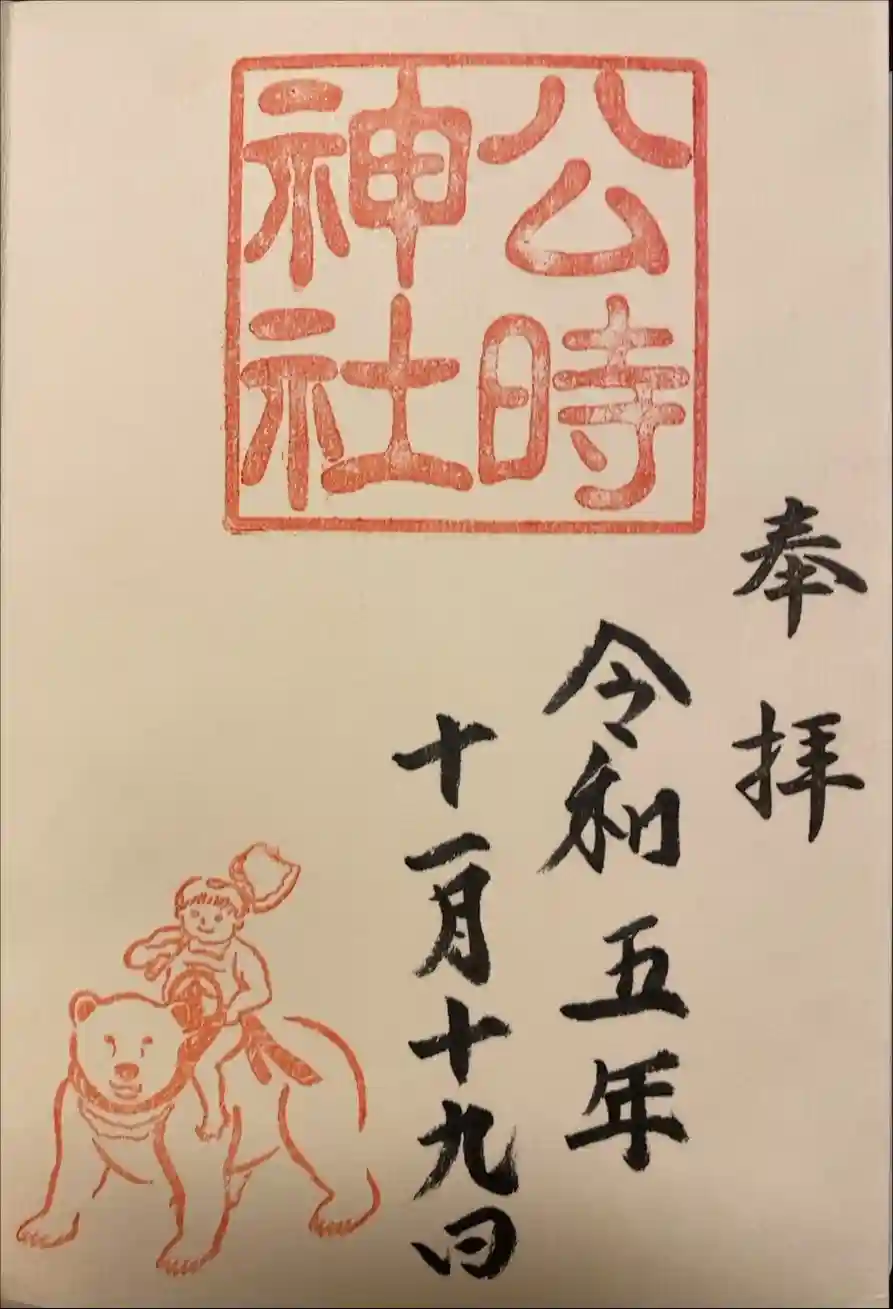 奉拝
公時
神社
令和五年
十一月十九日